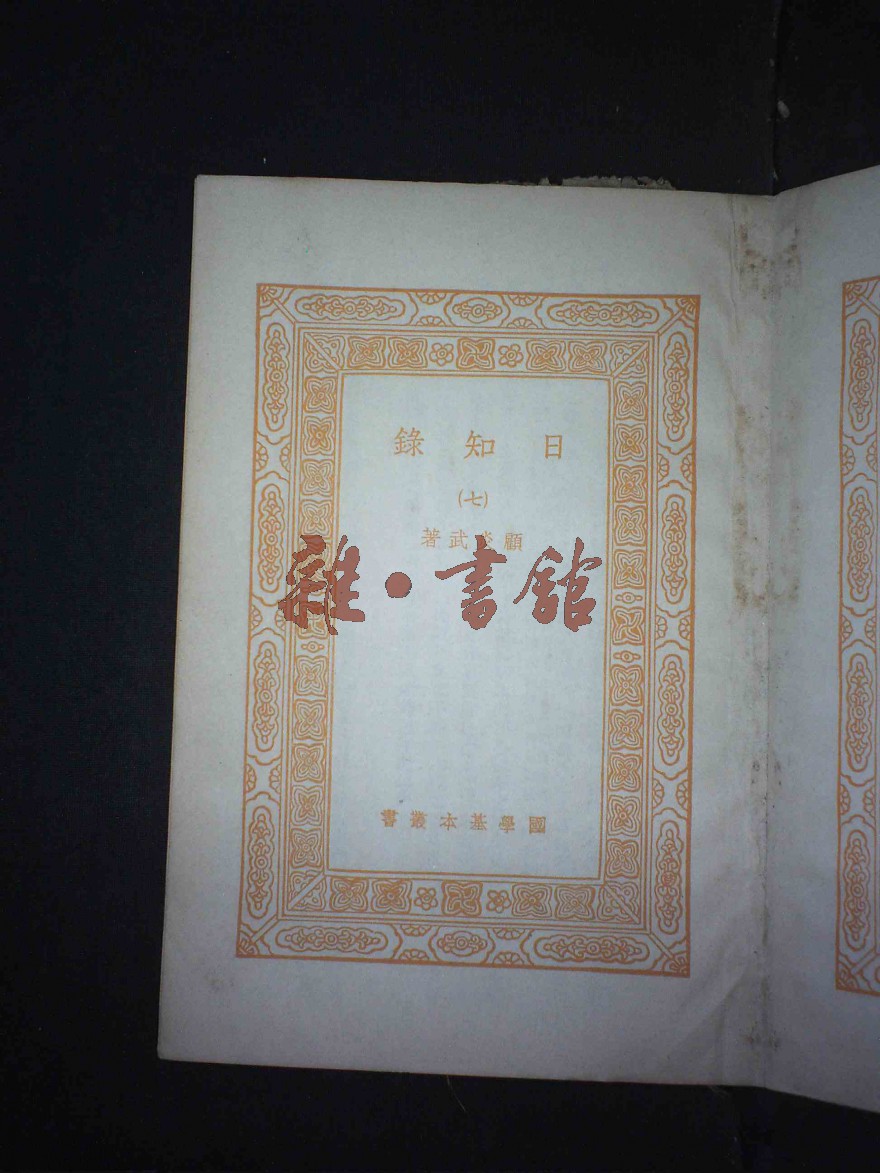 日知錄
(七)
顧炎武著
雜·書館
國學基本叢書